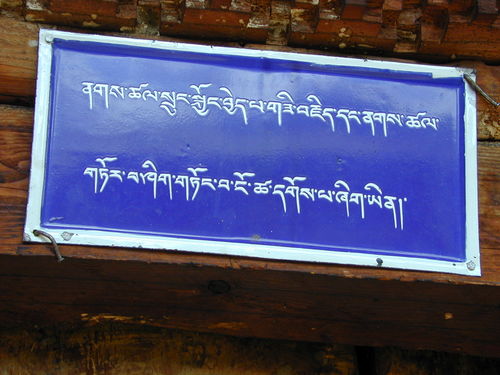 ནགས་ཚལ་སྲུང་སྐྱོང་བྱེད་པ་གཟི་བརྗིད་དང་ནགས་ཚལ་
གཏོར་བཤིག་གཏོང་བ་ངོ་ཚ་དགོས་པ་ཞིག་ཡིན།